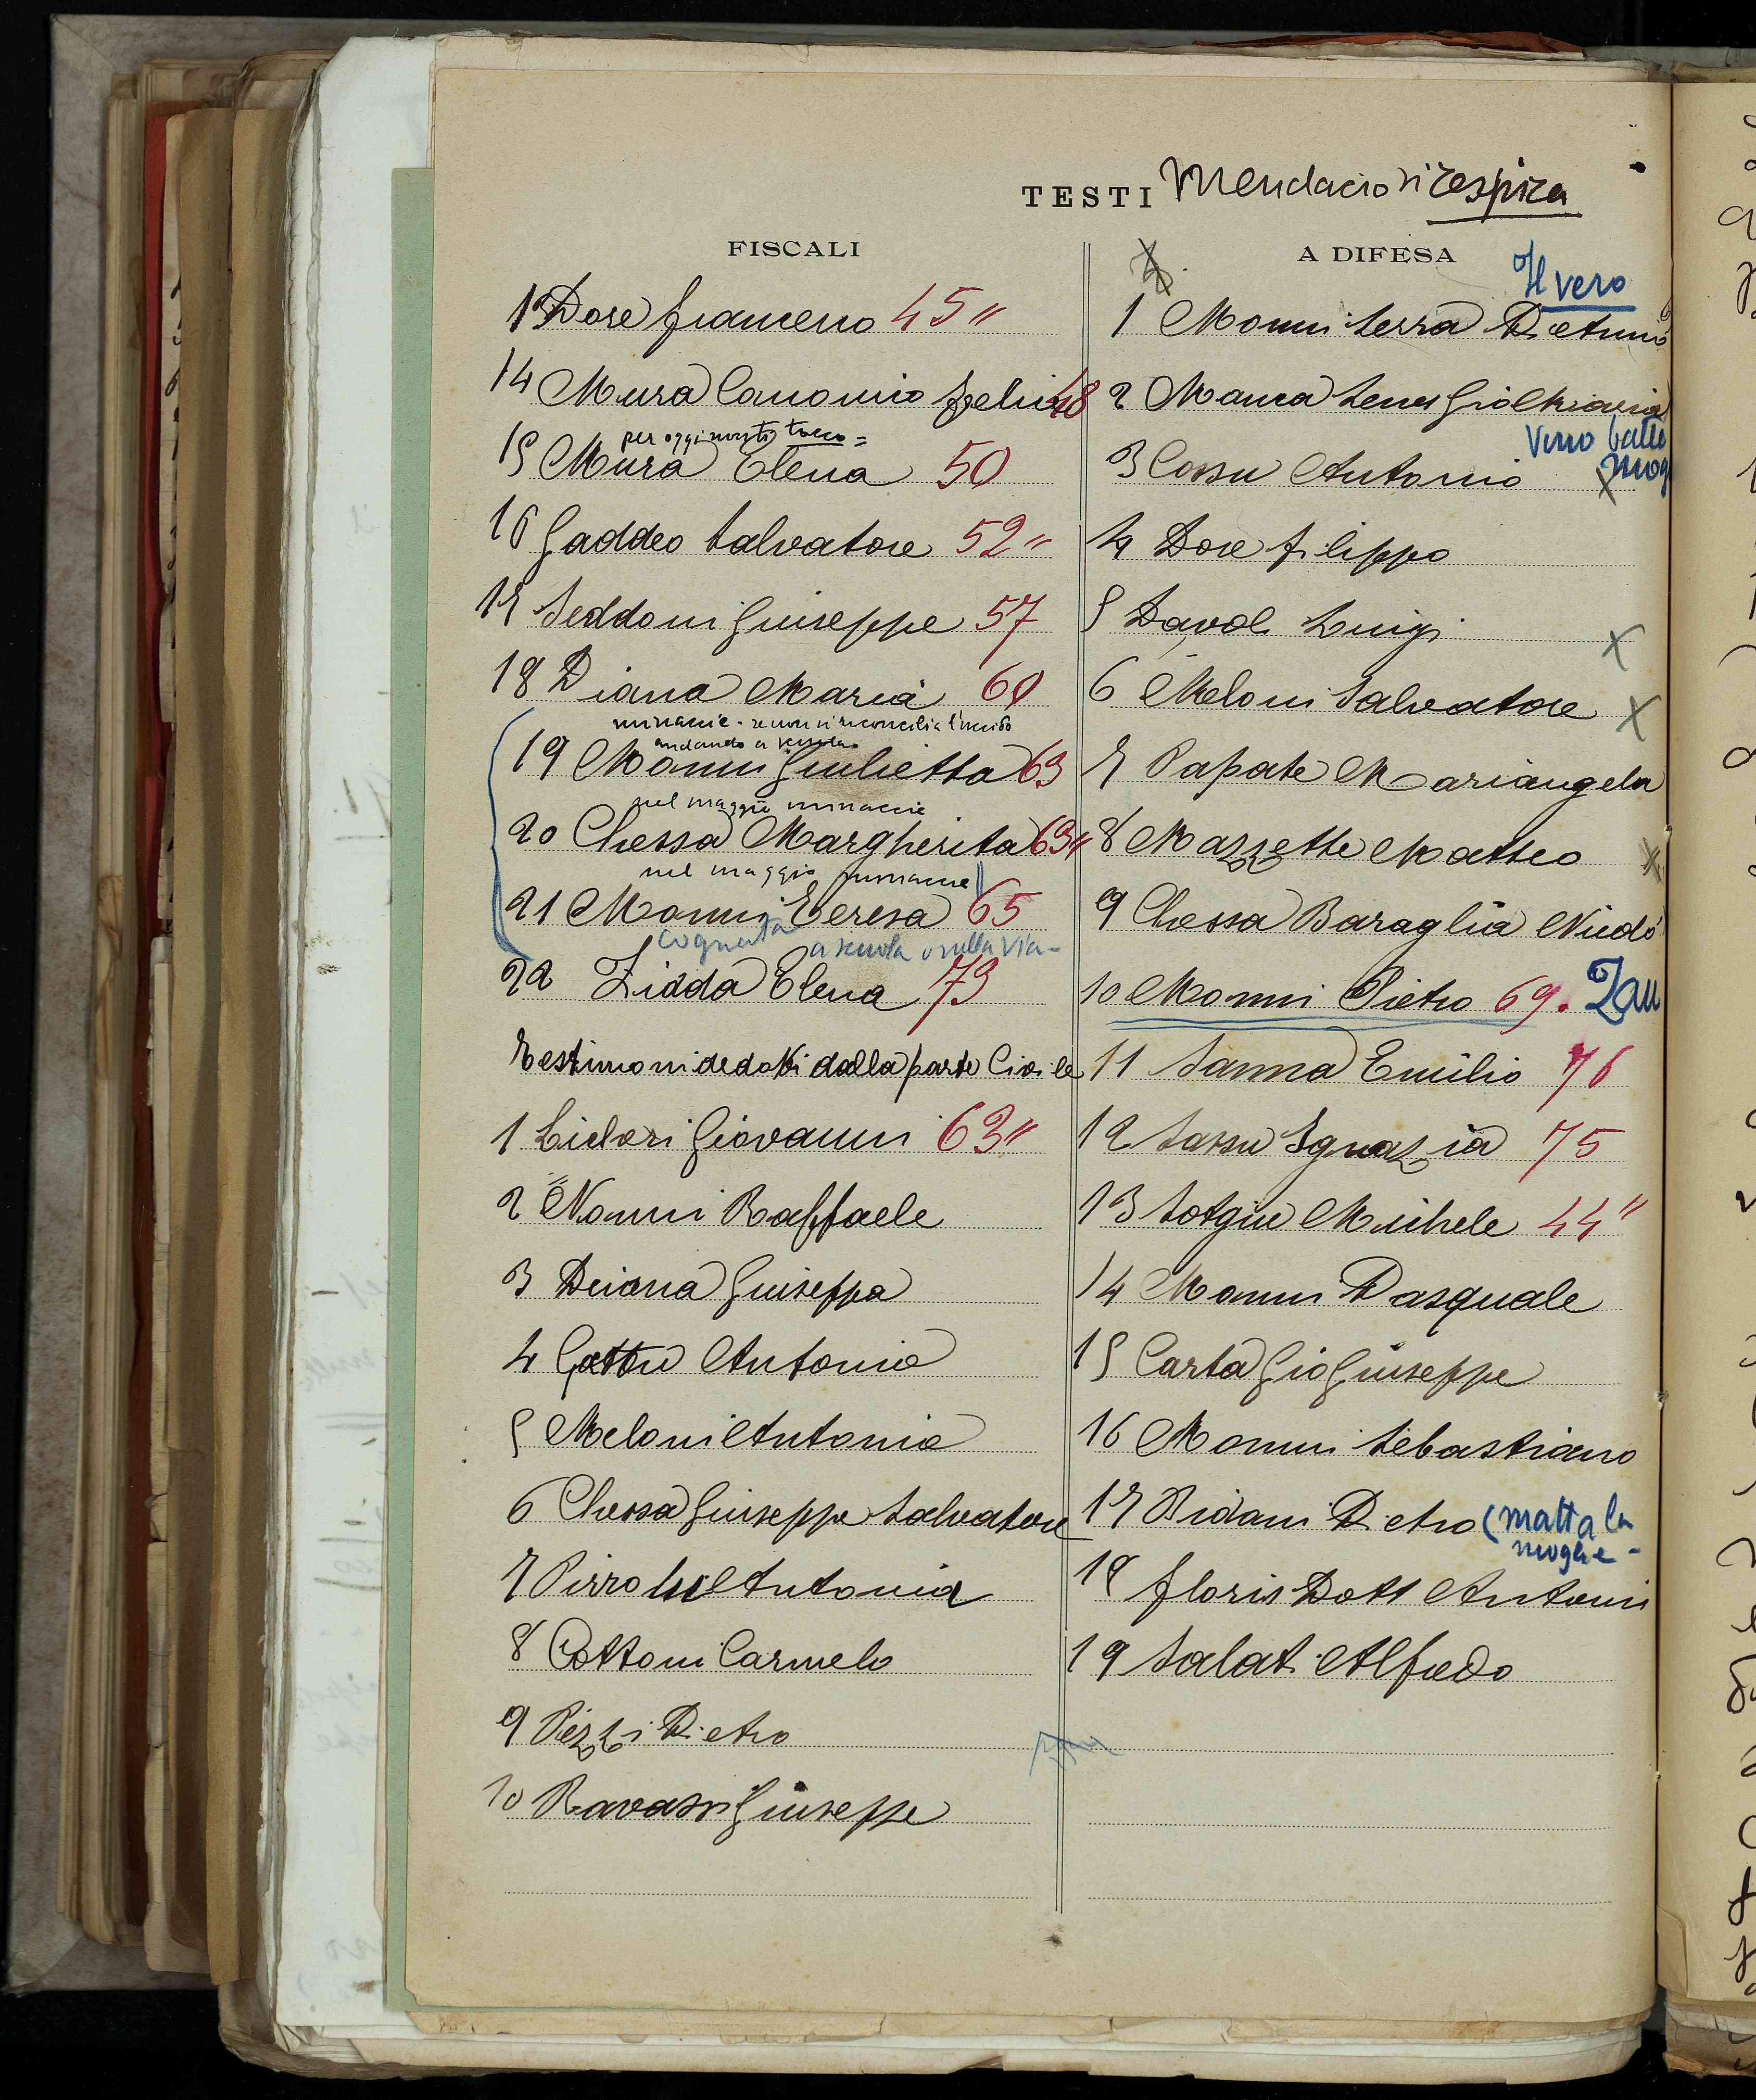 TESTI Mendacio si respira
FISCALI
13 Dore Francesco 45 "
14 Mura Canonico Felice 48
per oggi morto tocco =
15 Mura Elena 50
16 Gaddeo Salvatore 52 "
17 Seddoni Giuseppe 57
18 Diana Maria 60
minaccie - se non si riconcilia l'uccido
andando a scuola
19 Monni Giulietta 63
nel maggio minaccie
20 Chessa Margherita 63 "
nel maggio minaccie
21 Monni Teresa 65
cognata a scuola o nella via -
22 Zidda Elena 73
Testimoni dedotti dalla parte Civile
1 Licheri Giovanni 63 "
2 Nonni Raffaele
3 Deiana Giuseppa
4 Gattu Antonio
5 Meloni Antonio
6 Chessa Giuseppe Salvatore
7 Pirro Antonia
8 Cottoni Carmelo
9 Pezzi Pietro
10 Ravassi Giuseppe
A DIFESA
Il vero
1 Monni Serra
2 Manca Senes Gio Maria
Vino
3 Cossu Antonio X
4 Dore Filippo
5 Davoli Luigi X
6 Meloni Salvatore X
7 Papate Mariangela
8 Mazzette Matteo X
9 Chessa Baraglia
10 Monni Pietro 69.
11 Sanna Emilio 76
12 Sassu Ignazia 75
13 Sotgiu Michele 44 "
14 Monni Pasquale
15 Carta Gio Giuseppe
16 Monni Sebastiano
17 Pidani Pietro (matta la
moglie -
18 Floris Dott Antoni
19 Salati Alfredo